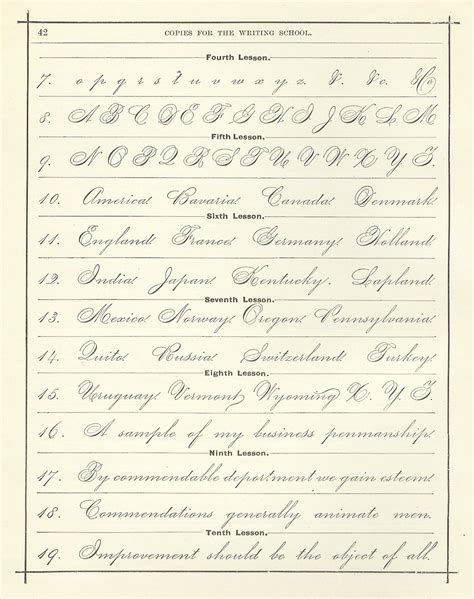 42 COPIES FOR THE WRITING SCHOOL.
Fourth Lesson.
7. o p q r s t u v w x y z. &. &c. &Co
8. A B C D E F G H I J K L M
Fifth Lesson.
9. N O P Q R S T U V W X Y Z.
10. America Bavaria Canada Denmark
Sixth Lesson.
11. England France Germany Holland
12. India Japan Kentucky. Lapland
Seventh Lesson.
13. Mexico Norway Oregon Pennsylvania
14. Quito Russia Switzerland Turkey
Eighth Lesson.
15. Uruguay Vermont Wyoming X. Y. Z.
16. A sample of my business penmanship.
Ninth Lesson.
17. By commendable deportment we gain esteem
18. Commendations generally animate men.
Tenth Lesson.
19. Improvement should be the object of all.